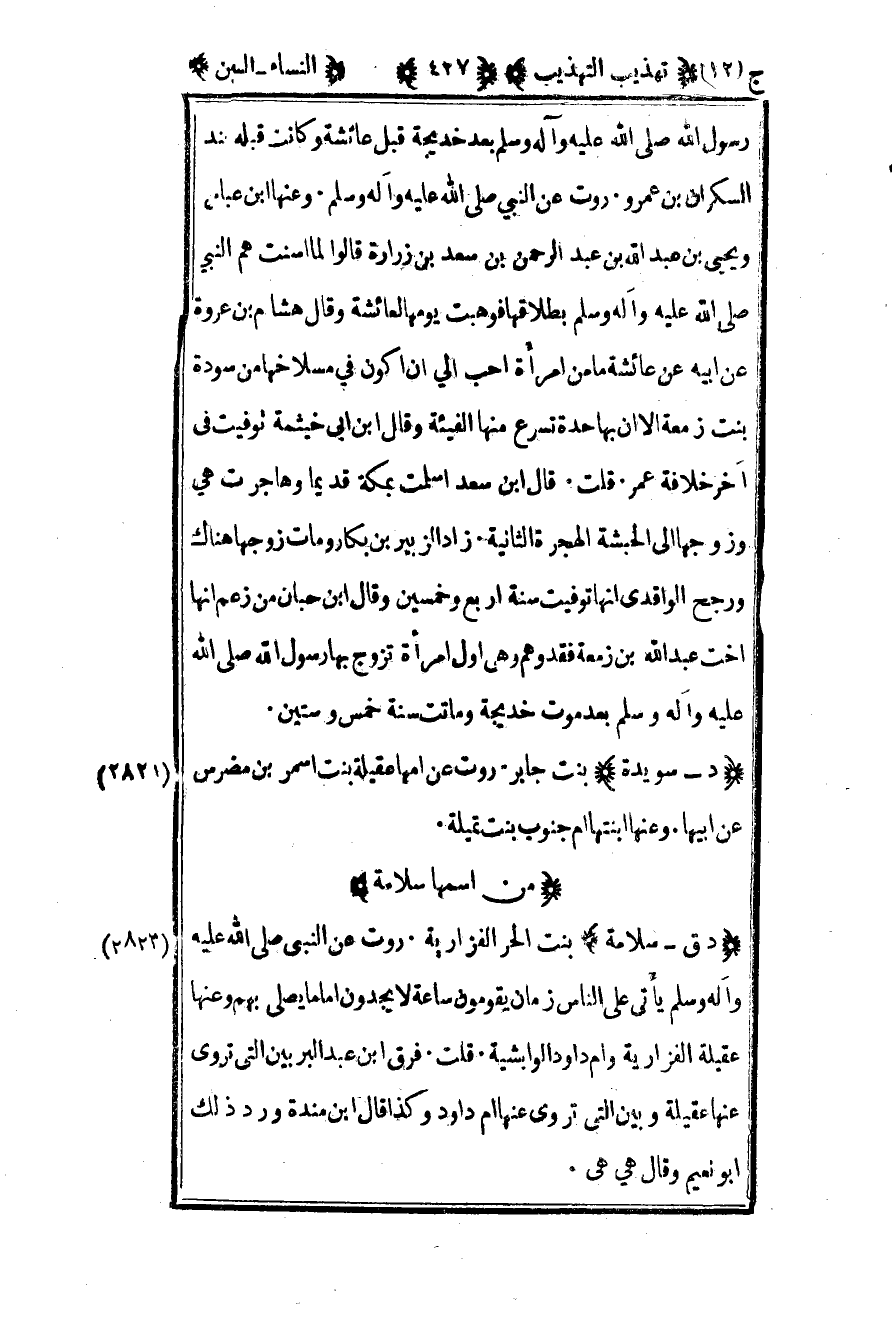 ج (١٢) ﴿ تهذيب التهذيب ﴾ ﴿ ٤٢٧ ﴾ ﴿ النساء - السين ﴾
رسول الله صلى الله عليه وآله وسلم بعد خديجة قبل عائشة وكانت قبله عند
السكران بن عمرو . روت عن النبي صلى الله عليه وآله وسلم . وعنها ابن عباس
ويحيى بن عبد الله بن عبد الرحمن بن سعد بن زرارة قالوا لما اسنت هم النبي
صلى الله عليه وآله وسلم بطلاقها فوهبت يومها لعائشة وقال هشام بن عروة
عن ابيه عن عائشة ما من امرأة احب الي ان اكون في مسلاخها من سودة
بنت زمعة الا ان بها حدة تسرع منها الفيئة وقال ابن ابى خيثمة توفيت فى
آخر خلافة عمر . قلت . قال ابن سعد اسلمت بمكة قديما وهاجرت هي
وزوجها الى الحبشة الهجرة الثانية . زاد الزبير بن بكار ومات زوجها هناك
ورجح الواقدى انها توفيت سنة اربع وخمسين وقال ابن حبان من زعم انها
اخت عبدالله بن زمعة فقد وهم وهى اول امرأة تزوج بها رسول الله صلى الله
عليه وآله وسلم بعد موت خديجة وماتت سنة خمس وستين .
﴿ د - سويدة ﴾ بنت جابر . روت عن امها عقيلة بنت اسمر بن مضرس (٢٨٢١)
عن ابيها . وعنها ابنتها ام جنوب بنت نميلة .
﴿ من اسمها سلامة ﴾
﴿ د ق - سلامة ﴾ بنت الحر الفزارية . روت عن النبى صلى الله عليه (٢٨٢٣)
وآله وسلم يأتى على الناس زمان يقومون ساعة لا يجدون اماما يصلى بهم وعنها
عقيلة الفزارية وام داود الوابشية . قلت . فرق ابن عبد البر بين التى تروى
عنها عقيلة وبين التى تروى عنها ام داود وكذا قال ابن مندة ورد ذلك
ابو نعيم وقال هي هى .